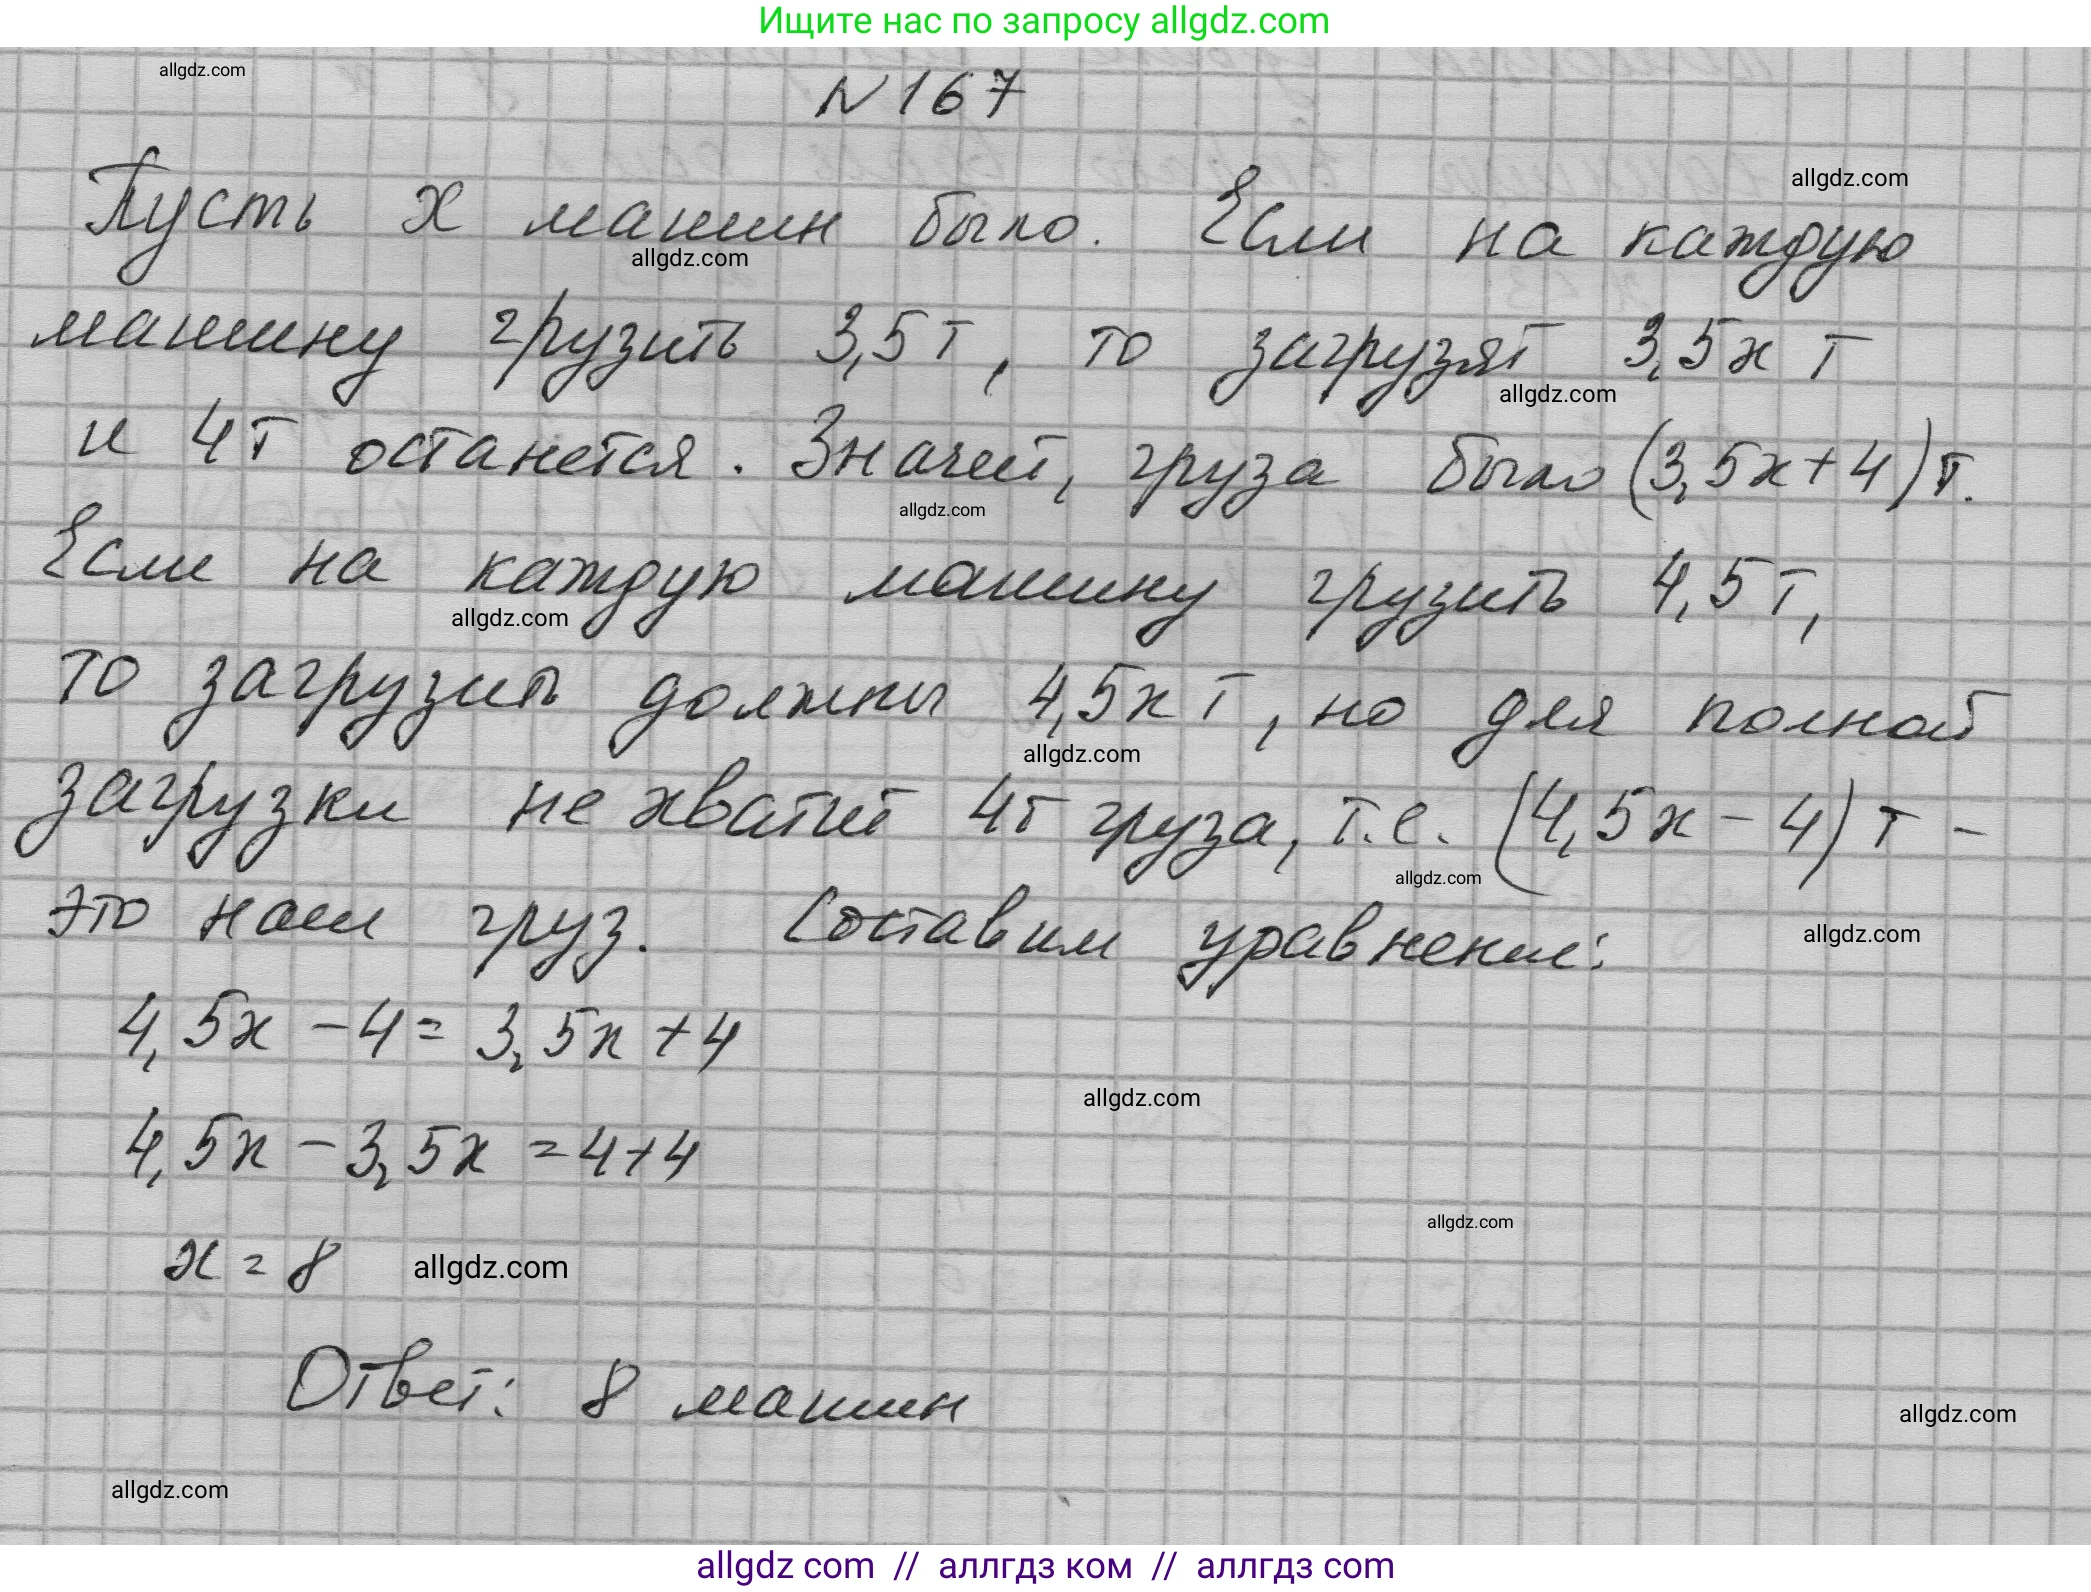 Ищите нас по запросу allgdz.com
allgdz.com
N 167
allgdz.com
Пусть x машин было. Если на каждую
allgdz.com
машину грузить 3,5 т, то загрузят 3,5x т
allgdz.com
и 4 т останется. Значит, груза было (3,5x + 4) т.
allgdz.com
Если на каждую машину грузить 4,5 т,
allgdz.com
то загрузить должны 4,5x т, но для полной
allgdz.com
загрузки не хватит 4 т груза, т.е. (4,5x - 4) т -
allgdz.com
это наш груз. Составим уравнение:
allgdz.com
4,5x - 4 = 3,5x + 4
allgdz.com
4,5x - 3,5x = 4 + 4
allgdz.com
x = 8 allgdz.com
Ответ: 8 машин
allgdz.com
allgdz.com
allgdz com // аллгдз ком // аллгдз com